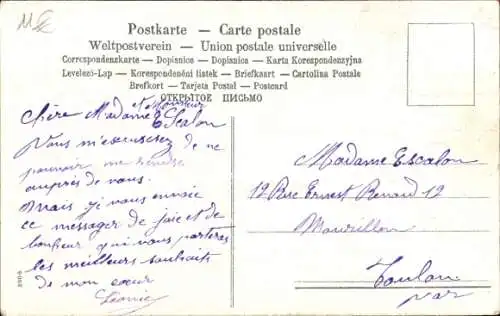 Postkarte — Carte postale
Weltpostverein — Union postale universelle
Correspondenzkarte — Dopisnice — Dopisnica — Karta Korespondenzyjna
Levelezö-Lap — Korespondenční listek — Briefkaart — Cartolina Postale
Brefkort — Tarjeta Postal — Postcard
ОТКРЫТОЕ ПИСЬМО
et Monsieur
Chère Madame Escalon
Vous m'excuserez de ne
pouvoir me rendre
auprès de vous.
Mais je vous envoie
ce messager de joie et de
bonheur qui vous portera
les meilleurs souhaits
de mon cœur
Léonie
Madame Escalon
12 Rue Ernest Renard 12
Mourillon
Toulon
Var